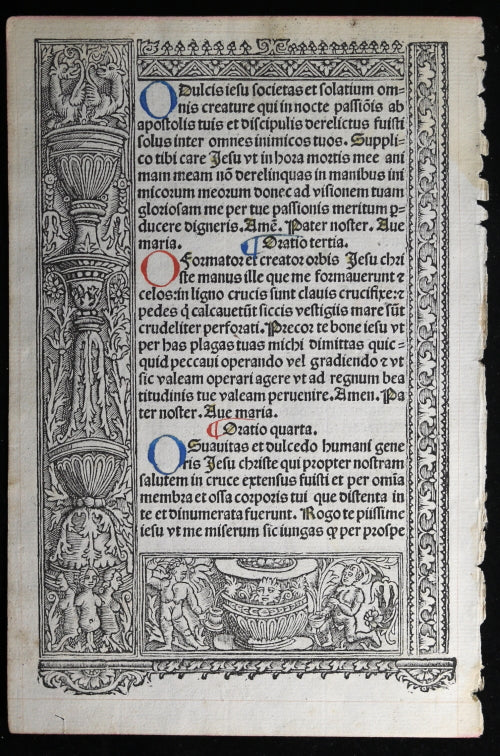 O Dulcis iesu societas et solatium om-
nis creature qui in nocte passiōis ab
apostolis tuis et discipulis derelictus fuisti
solus inter omnes inimicos tuos. Suppli-
co tibi care Jesu vt in hora mortis mee ani
mam meam nō derelinquas in manibus ini
micorum meorum donec ad visionem tuam
gloriosam me per tue passionis meritum ꝑ-
ducere digneris. Amē. Pater noster. Aue
maria. ¶ Oratio tertia.
O Formator et creator orbis Jesu chri
ste manus ille que me formauerunt ⁊
celos: in ligno crucis sunt clauis crucifixe: ⁊
pedes ꝙ calcauetūt siccis vestigiis mare sūt
crudeliter perforati. Precor te bone iesu vt
per has plagas tuas michi dimittas quic-
quid peccaui operando vel gradiendo ⁊ vt
sic valeam operari agere vt ad regnum bea
titudinis tue valeam peruenire. Amen. Pa
ter noster. Aue maria.
¶ Oratio quarta.
O Suauitas et dulcedo humani gene
ris Jesu christe qui propter nostram
salutem in cruce extensus fuisti et per omīa
membra et ossa corporis tui que distenta in
te et dinumerata fuerunt. Rogo te piissime
iesu vt me miserum sic iungas ꝙ per prospe